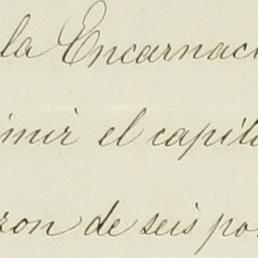 la Encarnaci
imir el capita
zon de seis por